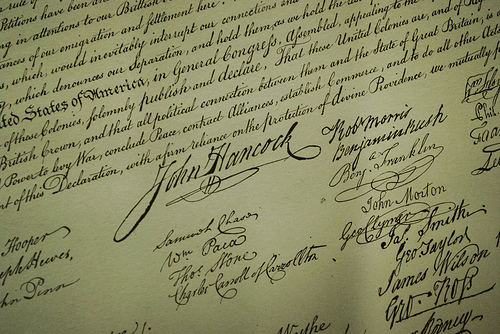 Petitions have been
ing in attentions to our Brittish
ances of our emigration and settlement here
s, which, would inevitably interrupt our connections and
which denounces our Separation, and hold them, as we hold the
ted States of America, in General Congress, Assembled, appealing to the
of these Colonies, solemnly publish and declare, That these United Colonies are, and of
British Crown, and that all political connection between them and the State of Great Britain, is
Power to levy War, conclude Peace, contract Alliances, establish Commerce, and to do all other Acts
rt of this Declaration, with a firm reliance on the protection of divine Providence, we mutually
John Hancock
Robt Morris
Benjamin Rush
Benj. Franklin
John Morton
Geo Clymer
Jas. Smith
Geo Taylor
James Wilson
Geo. Ross
Hooper
eph Hewes,
hn Penn
Samuel Chase
Wm Paca
Thos. Stone
Charles Carroll of Carrollton